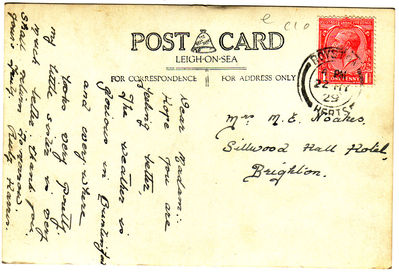 e C10
POST CARD
LEIGH-ON-SEA
FOR CORRESPONDENCE
FOR ADDRESS ONLY
1 ONE PENNY 1
ROYST
PM
22 MY
29
HERTS
Mrs M. E. Noakes.
Sillwood Hall Hotel,
Brighton.
Dear Madam:
Hope you are
feeling better,
The weather is
glorious in Buntingford
and every where
looks very pretty.
my little sister is very
much better. thank you.
Shall return tomorrow.
yours truly